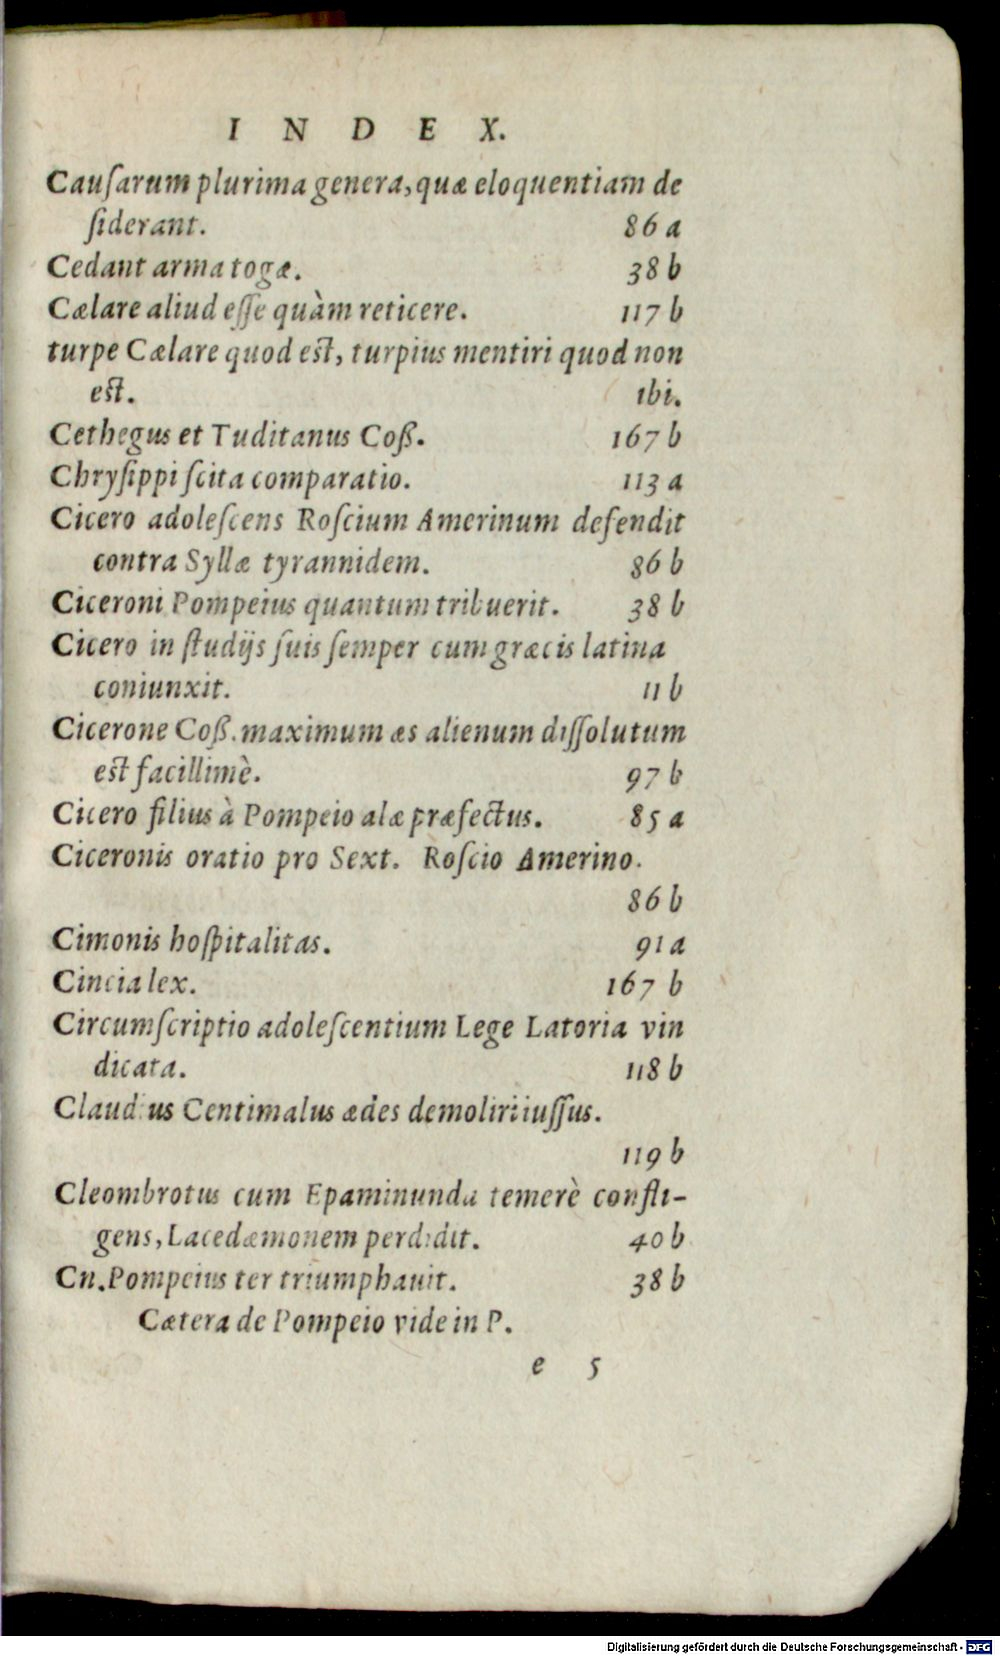 I N D E X.
Cauſarum plurima genera, quæ eloquentiam de
ſiderant. 86 a
Cedant arma togæ. 38 b
Cælare aliud eſſe quàm reticere. 117 b
turpe Cælare quod est, turpius mentiri quod non
est. ibi.
Cethegus et Tuditanus Coß. 167 b
Chryſippi ſcita comparatio. 113 a
Cicero adoleſcens Roſcium Amerinum defendit
contra Syllæ tyrannidem. 86 b
Ciceroni Pompeius quantum tribuerit. 38 b
Cicero in ſtudijs ſuis ſemper cum græcis latina
coniunxit. 11 b
Cicerone Coß. maximum æs alienum diſſolutum
est facillimè. 97 b
Cicero filius à Pompeio alæ præfectus. 85 a
Ciceronis oratio pro Sext. Roſcio Amerino.
86 b
Cimonis hoſpitalitas. 91 a
Cincia lex. 167 b
Circumſcriptio adoleſcentium Lege Latoria vin
dicata. 118 b
Claudius Centimalus ædes demoliri iuſſus.
119 b
Cleombrotus cum Epaminunda temerè confli-
gens, Lacedæmonem perdidit. 40 b
Cn. Pompeius ter triumphauit. 38 b
Cætera de Pompeio vide in P.
e 5
Digitalisierung gefördert durch die Deutsche Forschungsgemeinschaft - DFG